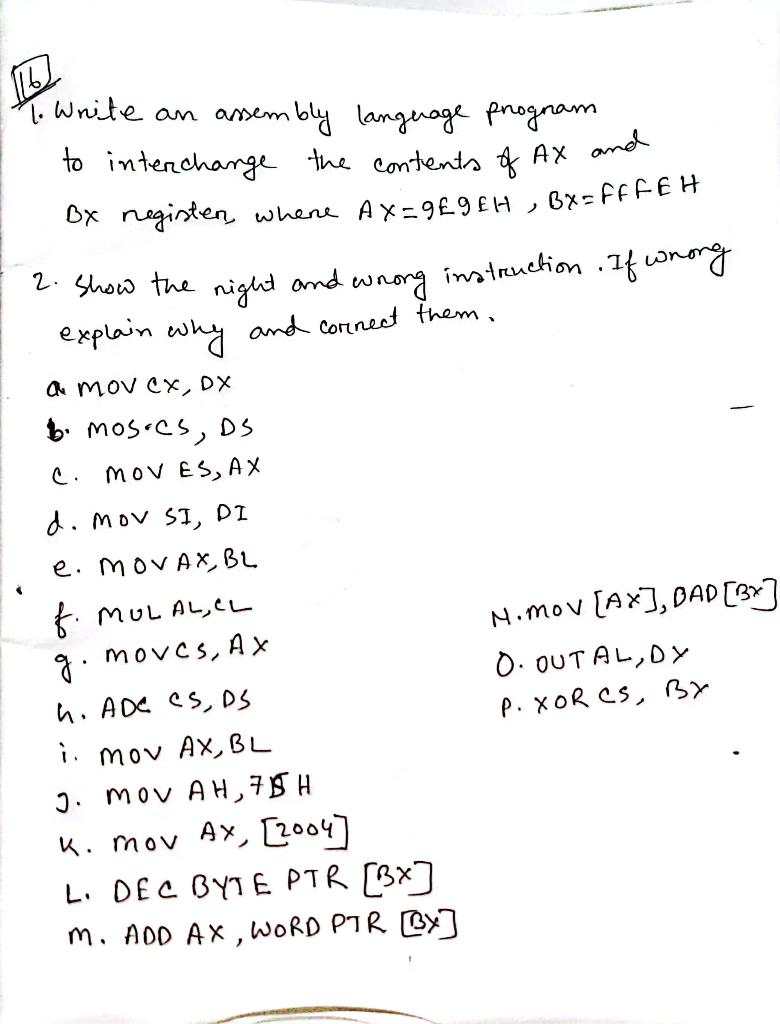 16
1. Write an assembly language program
to interchange the contents of AX and
BX register, where AX=9E9EH, BX=FFFEH
2. Show the right and wrong instruction. If wrong
explain why and correct them.
a. MOV CX, DX
b. MOS CS, DS
C. MOV ES, AX
d. MOV SI, DI
e. MOV AX, BL
f. MUL AL, CL
g. MOVCS, AX
h. ADC CS, DS
i. MOV AX, BL
J. MOV AH, 75H
K. MOV AX, [2004]
L. DEC BYTE PTR [BX]
M. ADD AX, WORD PTR [BX]
N. MOV [AX], DAD [BX]
O. OUT AL, DX
P. XOR CS, BX